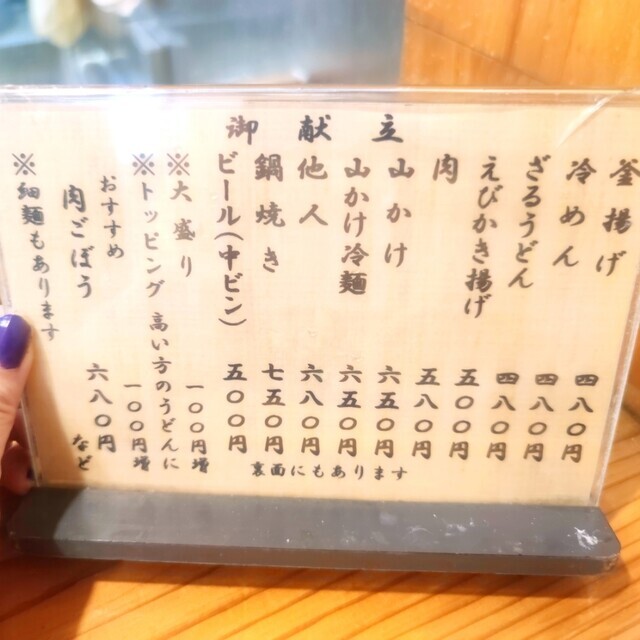 御献立
釜揚げ 四八〇円
冷めん 四八〇円
ざるうどん 四八〇円
えびかき揚げ 五〇〇円
肉 五八〇円
山かけ 六五〇円
山かけ冷麺 六五〇円
他人 六八〇円
鍋焼き 七五〇円
ビール(中ビン) 五〇〇円
※大盛り 一〇〇円増
※トッピング 高い方のうどんに
一〇〇円増
おすすめ
肉ごぼう 六八〇円
など
※細麺もあります
裏面にもあります